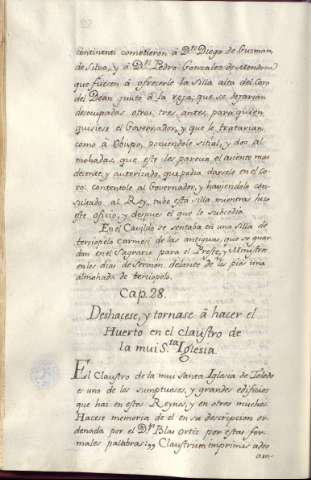 continenti cometieron â D.ⁿ Diego de Guzman
de Silva, y â D.ⁿ Pedro Gonzalez de Mendoza
que fuesen â ofrecerle la Silla alta del Coro
del Dean junto â la reja, que se dejarian
desocupadas otras tres antes, para quien
quisiese el Governador, y que le tratarian
como â Obispo, poniendole sitial, y dos al
mohadas, que este les parecia el asiento mas
decente, y autorizado, que podia darsele en el Co
ro: contentole al Governador, y haviendolo con
sultado al Rey, tubo esta silla mientras hizo
este oficio, y despues el que le subcediò.
En el Cavildo se sentaba en una silla de
terciopelo carmesi de las antiguas, que se guar
dan en el Sagrario para el Preste, y Ministros
en los dias de Sermon, delante de los pies una
almohada de terciopelo.
Cap. 28.
Deshacese, y tornase â hacer el
Huerto en el Claustro de
la mui S.ᵗᵃ Iglesia.
El Claustro de la mui Santa Iglesia de Toledo
es uno de los sumptuosos, y grandes edificios
que hai en estos Reynos, y en otros muchos.
Hacese memoria de el en su descripcion or
denada por el D.ʳ Blas Ortiz por estas for
males palabras: Claustrum imprimis adeo
am-